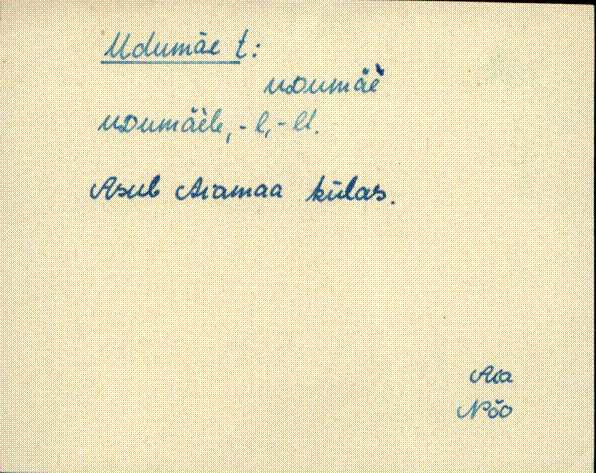 Udumäe t:
uDumäè
uDumäèle, -l, -lt.
Asub Aiamaa külas.
Aia
Nõo